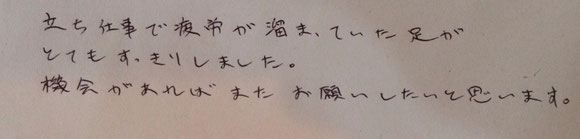 立ち仕事で疲労が溜まっていた足が
とてもすっきりしました。
機会があればまたお願いしたいと思います。